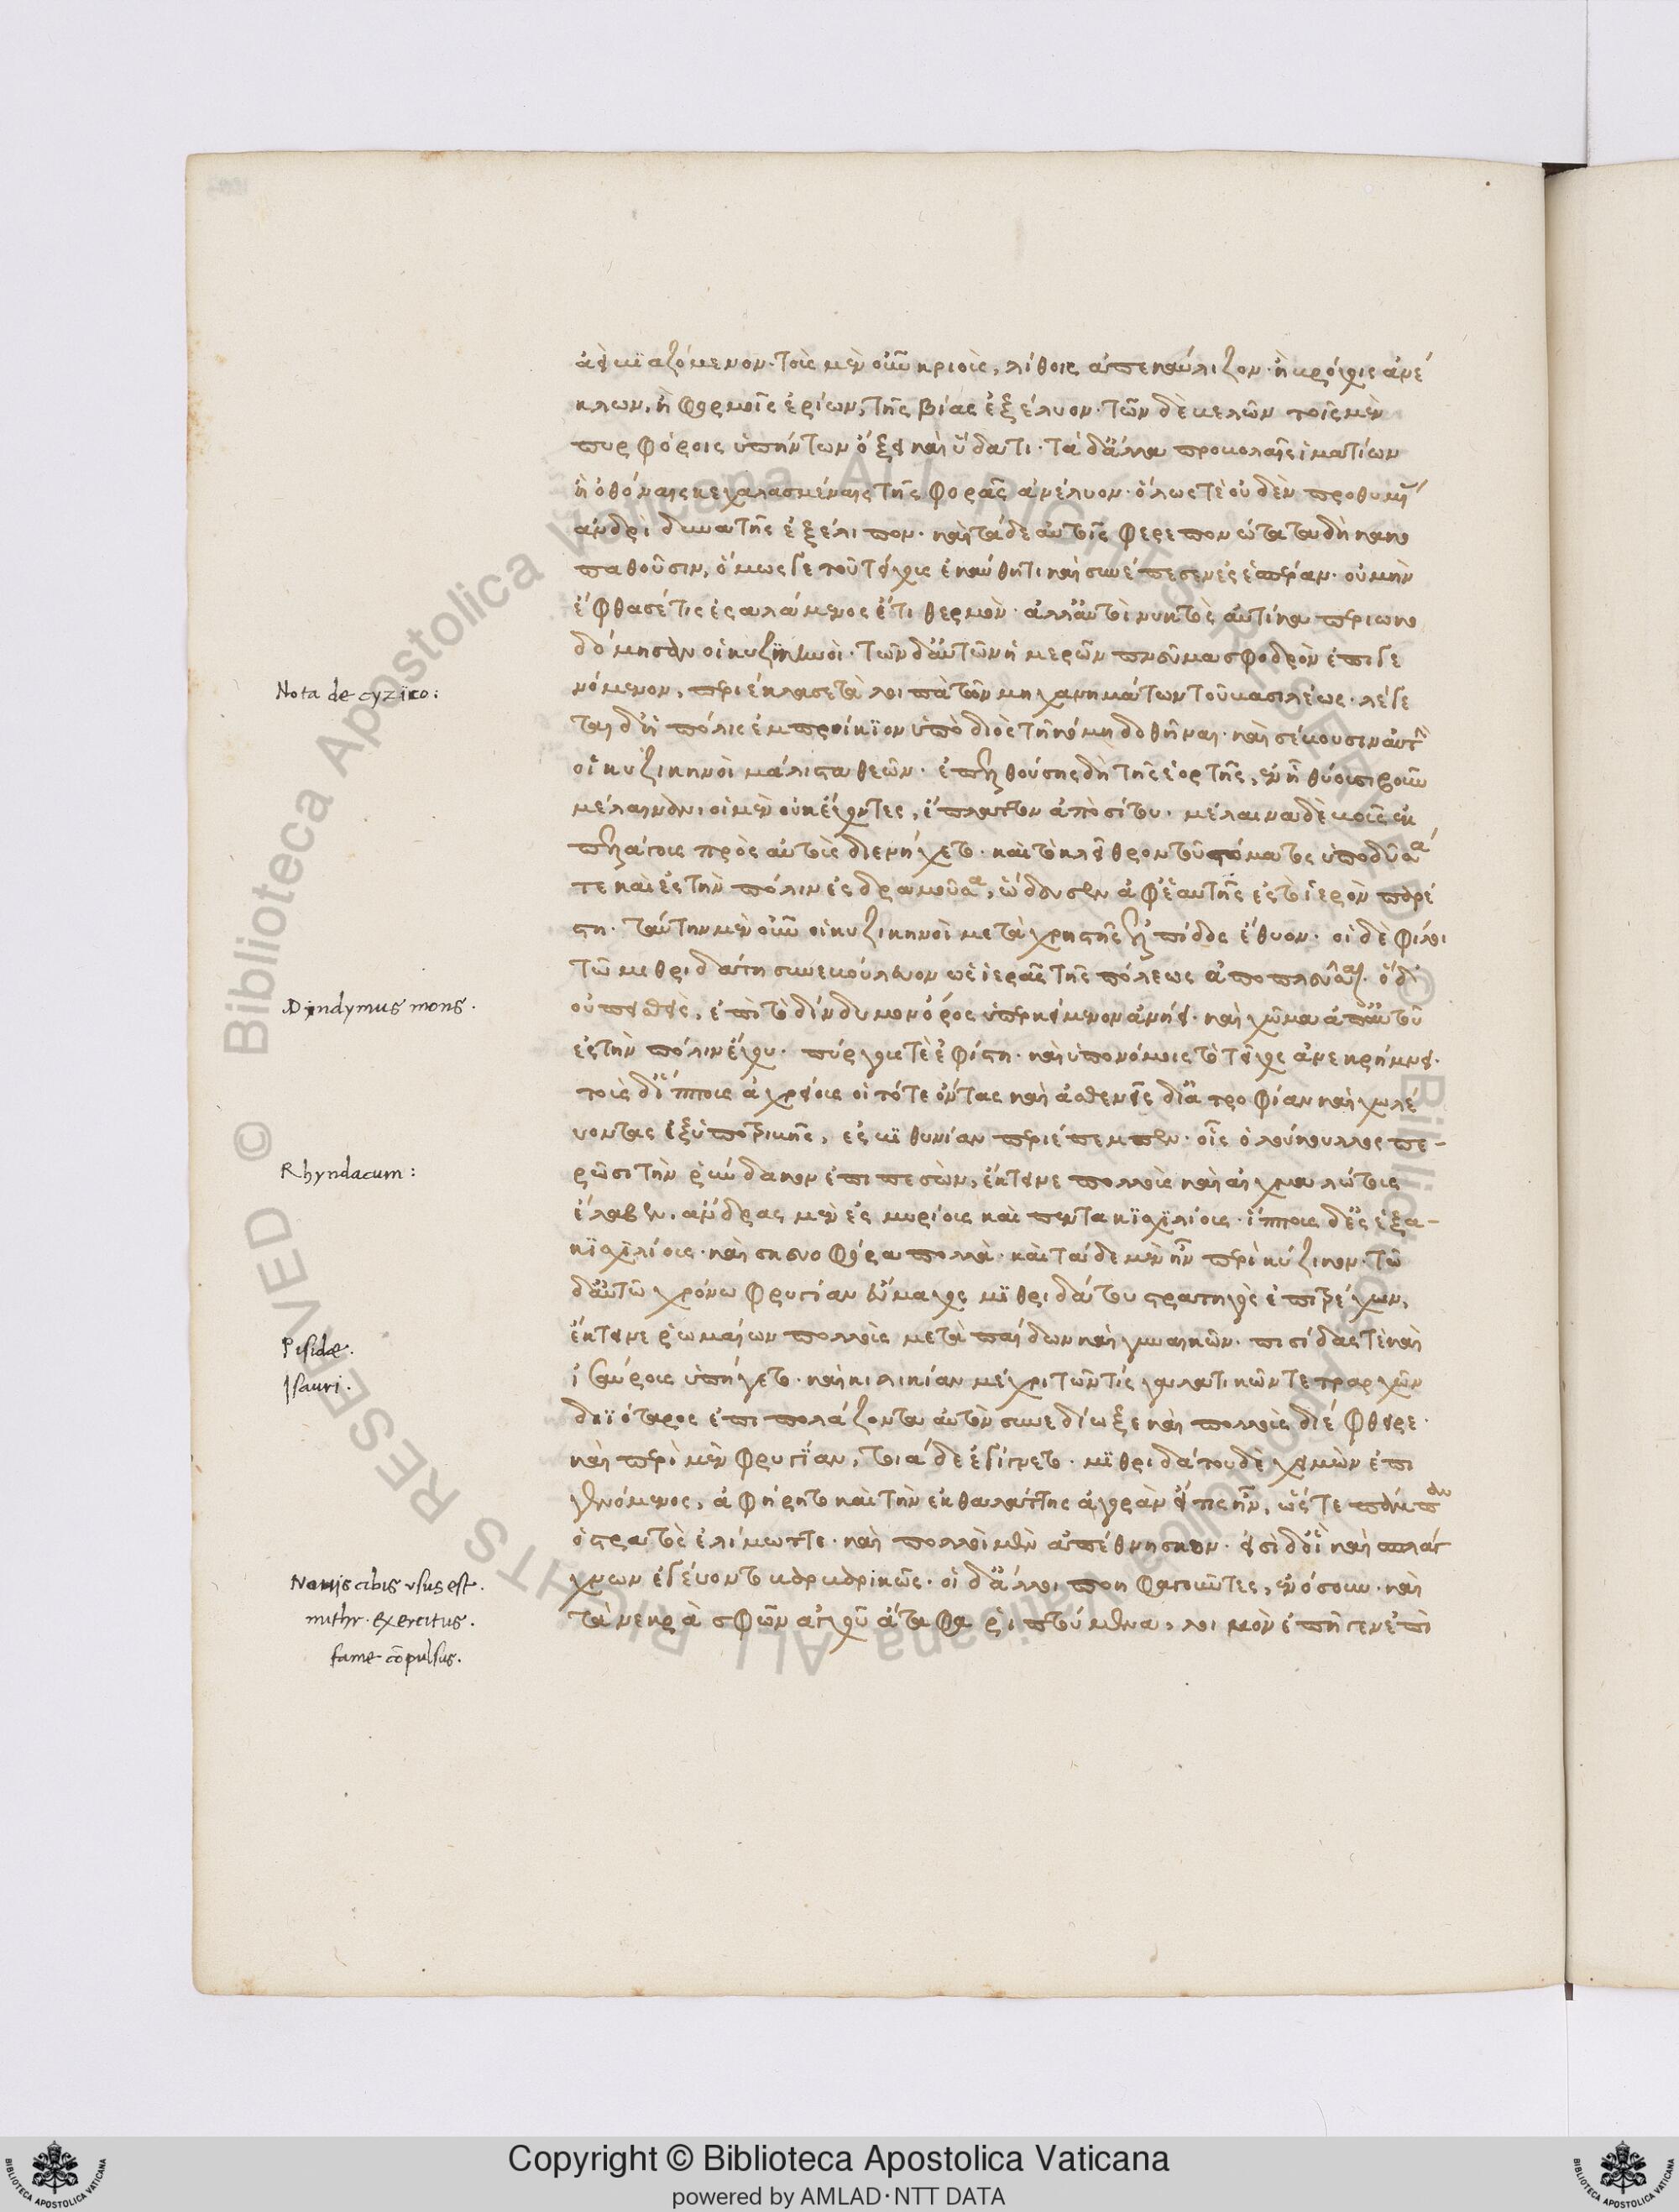 ἀεὶ βιαζόμενον. τοὺς μὲν οὖν κριοὺς, λίθοις ἀπεκαύλιζον. ἢ βρόχοις ἀνέ
κλων, ἢ φορμοῖς ἐρίων, τῆς βίας ἐξέλυον. τῶν δὲ βελῶν τοῖς μὲν
πυρφόροις ὑπήντων ὄξει καὶ ὕδατι. τὰ δ' ἄλλα προβολαῖς ἱματίων
ἢ ὀθόναις κεχαλασμέναις τῆς φορᾶς ἀνέλυον. ὅλως τὲ οὐδὲν προθυμί
ἀνδρὶ δυνατῆς ἐξέλιπον. καὶ τάδε αὐτοῖς φερεπονώτατα δὴ κακο
παθοῦσιν, ὅμως γε τοῦ τείχους ἐκαύθη τι καὶ συνέπεσεν ἐς ἑσπέραν. οὐ μὴν
ἔφθασέ τις ἐσαλάμενος ἔτι θερμὸν. ἀλλ' αὐτὸ νυκτὸς αὐτίκα περιωκο
δόμησαν οἱ κυζικηνοὶ. τῶν δ' αὐτῶν ἡμερῶν πνεῦμα σφοδρὸν ἐπιγε
νόμενον, περιέκλασε τὰ λοιπὰ τῶν μηχανημάτων τοῦ βασιλέως. λέγε
ται δ' ἡ πόλις ἐμπροίκιον ὑπὸ διὸς τῆ κόρη δοθῆναι. καὶ σέβουσιν αὐτὴ
οἱ κυζικηνοὶ μάλιστα θεῶν. ἐπελθούσης δὴ τῆς ἑορτῆς, ἐν ἧ θύουσι βοῦν
μέλαιναν, οἱ μὲν οὐκ ἔχοντες, ἔπλαττον ἀπὸ σίτου. μέλαινα δὲ βοῦς ἐκ
πελάγους πρὸς αὐτοὺς διενήχετο. καὶ τὸ κλεῖθρον τοῦ στόματος ὑποδῦσά
τε καὶ ἐς τὴν πόλιν ἐσδραμοῦσα, ὥδευσεν ἀφ' ἑαυτῆς ἐς τὸ ἱερὸν παρέ
στη. ταύτην μὲν οὖν οἱ κυζικηνοὶ μετὰ χρηστῆς ἐλπίδος ἔθυον. οἱ δὲ φίλοι
τῶ μιθριδάτη συνεβούλευον ὡς ἱερᾶς τῆς πόλεως ἀποπλεῦσαι. ὁ δ'
οὐ πεισθεὶς, ἐπὶ τὸ δίνδυμον ὄρος ὑπερκείμενον ἀνήει. καὶ χῶμα ἀπ' αὐτοῦ
ἐς τὴν πόλιν ἔχου. πύργους τὲ ἐφίστη. καὶ ὑπονόμοις τὸ τεῖχος ἀνεκρήμνη.
τοὺς δ' ἵππους ἀχρείους οἱ τότε ὄντας καὶ ἀσθενεῖς δι' ἀτροφίαν καὶ χωλέ
υοντας ἐξ ὑποτριβῆς, ἐς βιθυνίαν περιέπεμπεν. οἷς ὁ λούκουλλος πε-
ρῶσι τὴν ῥύνδακον ἐπιπεσὼν, ἔκτεινε πολλοὺς καὶ αἰχμαλώτους
ἔλαβεν. ἄνδρας μὲν ἐς μυρίους καὶ πεντακισχιλίους. ἵππους δ' ἐς ἑξα-
κισχιλίους. καὶ σκευοφόρα πολλὰ. καὶ τάδε μὲν ἦν περὶ κύζικον. τῶ
δ' αὐτῶ χρόνω φρυγίαν εὔμαχος μιθριδάτου στρατηγὸς ἐπιτρέχων,
ἔκτεινε ῥωμαίων πολλοὺς μετὰ παίδων καὶ γυναικῶν. πισίδας τὲ καὶ
ἰσαύρους ὑπήγετο. καὶ κιλικίαν μέχρι τῶν τίς γαλατικῶν τετραρχῶν
δηϊόταρος ἐπιπολάζοντα αὐτὸν συνεδίωξε καὶ πολλοὺς διέφθειρε.
καὶ περὶ μὲν φρυγίαν, τοιάδε ἐγίγνετο. μιθριδάτου δὲ χειμὼν ἐπι
γενόμενος, ἀφήρητο καὶ τὴν ἐκ θαλάττης ἀγορὰν εἴ τις ἦν, ὥστε πάμπαν
ὁ στρατὸς ἐλίμωττε. καὶ πολλοὶ μὲν ἀπέθνησκον. εἰσὶ δ' οἳ καὶ σπλάγ
χνων ἐγεύοντο βαρβαρικῶς. οἱ δ' ἄλλοι ποηφαγοῦντες, ἐνόσουν. καὶ
τὰ νεκρὰ σφῶν ἀγχοῦ ἄταφα ῥιπτούμενα, λοιμὸν ἐπῆγεν ἐπὶ
Nota de cyzico:
Dyndymus mons.
Rhyndacum:
Pisidæ.
Isauri.
Novis cibis usus est.
mithr. exercitus.
fame cōpulsus.
Copyright © Biblioteca Apostolica Vaticana
powered by AMLAD·NTT DATA